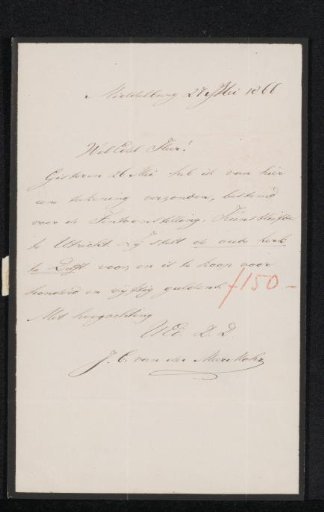 Middelburg 27 Mei 1866
WelEdel Heer!
Gisteren 26 Mei heb ik van hier
een teekening verzonden, bestemd
voor de Tentoonstelling, Kunstliefde
te Utrecht zij stelt de oude kerk
te Delft voor en is te koop voor
honderd en vijftig guldens f150.-
Met hoogachting
UEd D.D.
J. C. van der